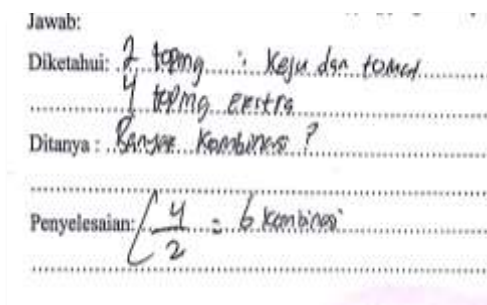 Jawab:
Diketahui: 2 toping : Keju dan tomat
4 toping ekstra
Ditanya : Banyak Kombinasi ?
Penyelesaian: ( 4/2 = 6 kombinasi